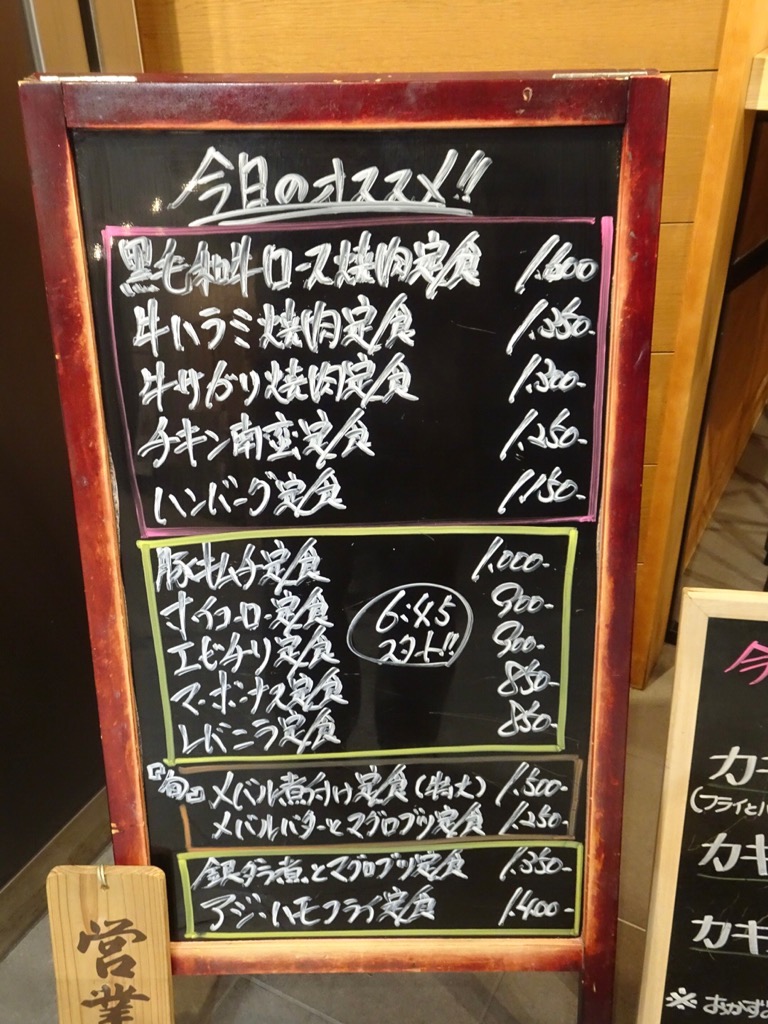 今日のオススメ!!
黒毛和牛ロース焼肉定食 1.600
牛ハラミ焼肉定食 1.350-
牛サガリ焼肉定食 1.300-
チキン南蛮定食 1.250-
ハンバーグ定食 1.150-
豚キムチ定食 1.000-
ホイコーロー定食 900-
エビチリ定食 900-
マーボーナス定食 850-
レバニラ定食 850-
6:45
スタート!!
『旬』メバル煮付け定食(特大) 1.500-
メバルバターとマグロブツ定食 1.250-
銀ダラ煮とマグロブツ定食 1.350-
アジ・ハモフライ定食 1.400-
営業
今
カキ
(フライとハ
カキ
カキ
※おかず